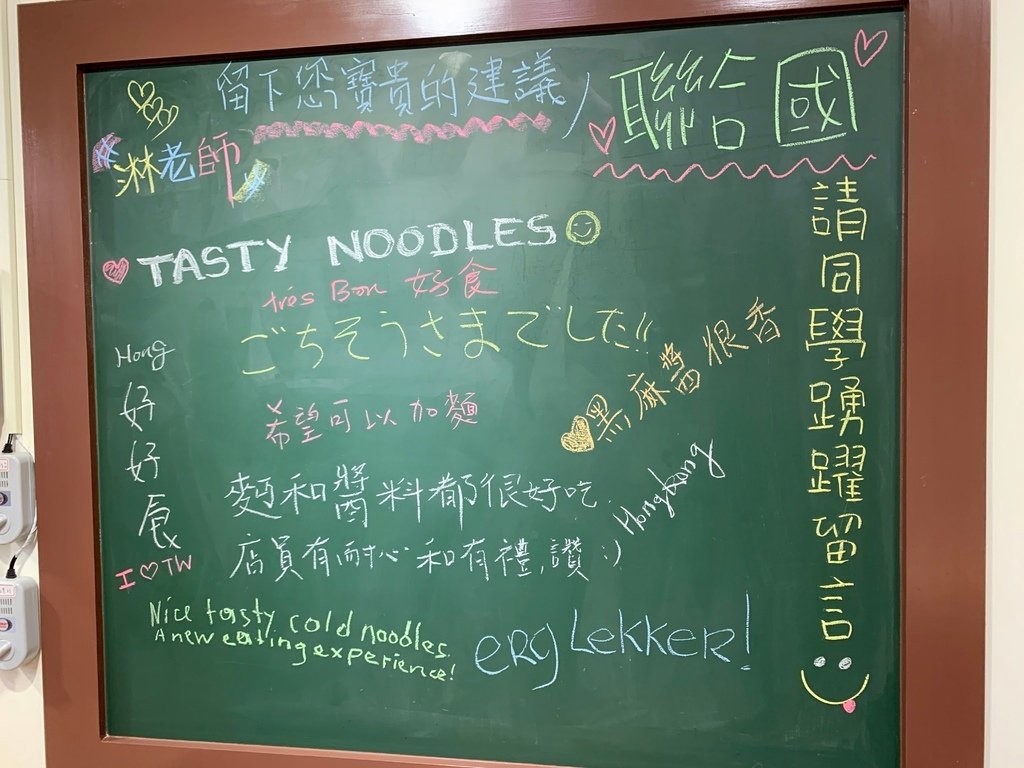 留下您寶貴的建議
聯合國
淋老師
請同學踴躍留言
TASTY NOODLES
très Bon 好食
ごちそうさまでした!!
Hong
好好食
黑麻醬很香
希望可以加麵
麵和醬料都很好吃.
店員有耐心和有禮,讚 :)
Hongkong
I ♡ TW
Nice tasty cold noodles.
A new eating experience!
erg Lekker!